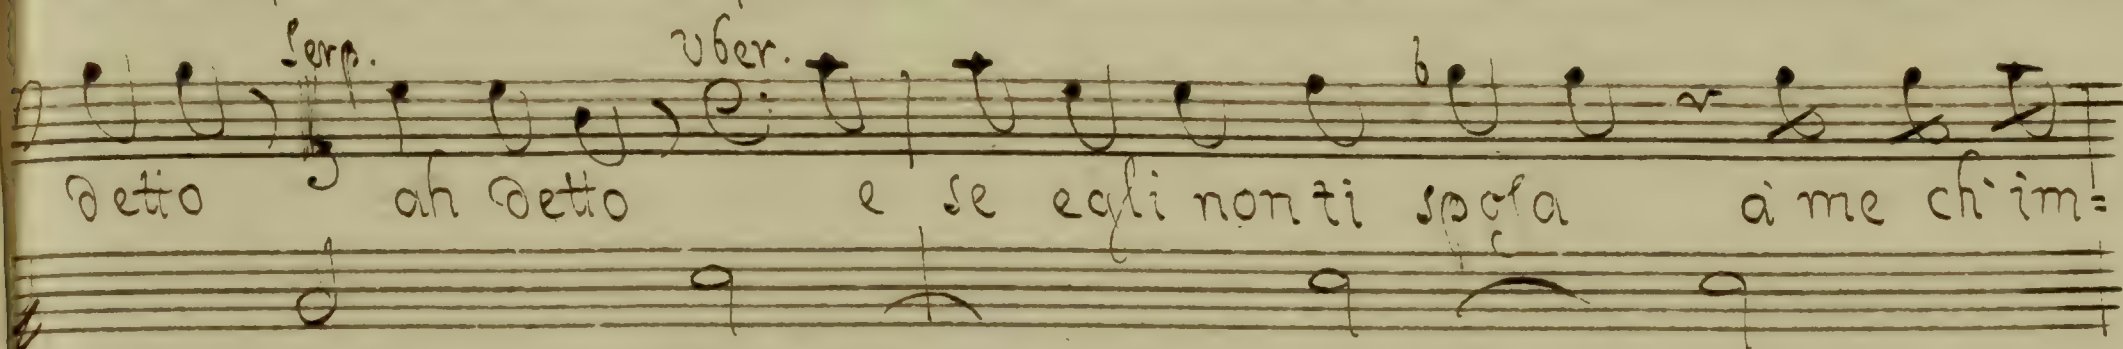 Serp. Vber.
detto ah detto e se egli non ti sposa à me ch'im=